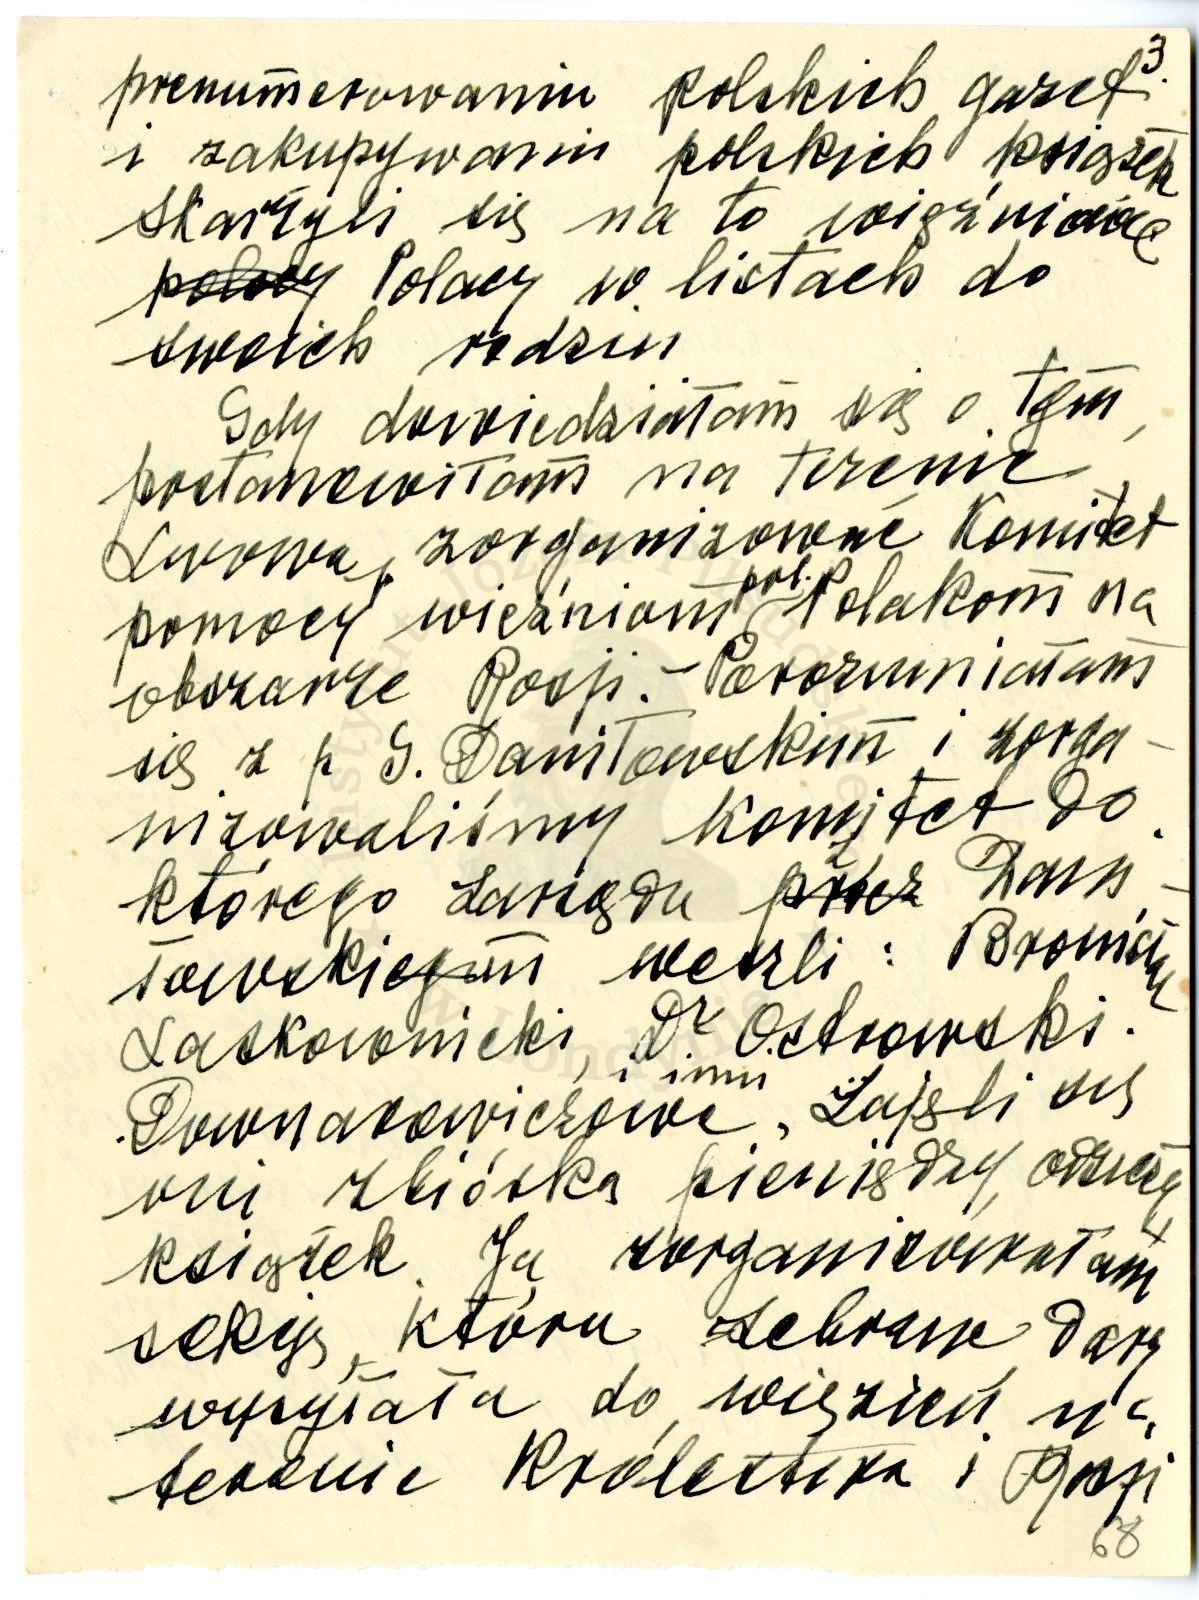 3.
prenumerowaniu polskich gazet
i zakupywaniu polskich książek
skarżyli się na to więźniowie
polacy Polacy w listach do
swoich rodzin
Gdy dowiedziałam się o tem,
postanowiłam na terenie
Lwowa, zorganizować Komitet
pomocy więźniom pol. Polakom na
obszarze Rosji. – Porozumiałam
się z p G. Daniłowskim i zorga-
nizowaliśmy komitet do
którego zarządu przez Dani-
łowskiego weszli: Bronisław
Laskownicki, Dr Ostrowski.
i inni
Downarowiczowa, Zajęli się
oni zbiórką pieniędzy, odzieży
książek. Ja zorganizowałam
sekcję, która zebrane dary
wysyłała do więzień na
terenie Królestwa i Rosji
68